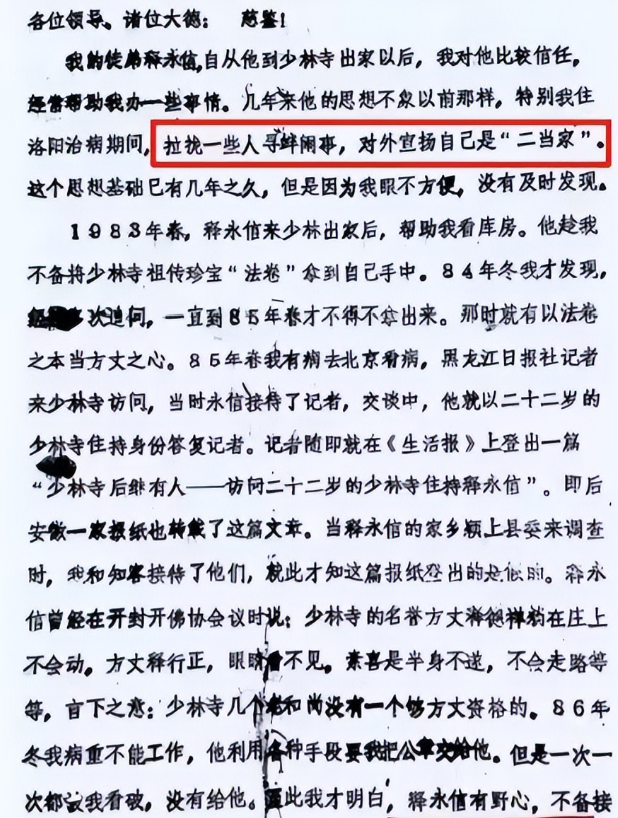 各位领导、诸位大德： 慈鉴！
我的徒弟释永信，自从他到少林寺出家以后，我对他比较信任，
经常帮助我办一些事情。几年来他的思想不象以前那样，特别我住
洛阳治病期间，拉拢一些人寻衅闹事，对外宣扬自己是“二当家”。
这个思想基础已有几年之久，但是因为我眼不方便，没有及时发现。
1983年春，释永信来少林出家后，帮助我看库房。他趁我
不备将少林寺祖传珍宝“法卷”拿到自己手中。84年冬我才发现，
次追问，一直到85年春才不得不拿出来。那时就有以法卷
之本当方丈之心。85年春我有病去北京看病，黑龙江日报社记者
来少林寺访问，当时永信接待了记者，交谈中，他就以二十二岁的
少林寺住持身份答复记者。记者随即就在《生活报》上登出一篇
“少林寺后继有人——访问二十二岁的少林寺住持释永信”。即后
安徽一家报纸也转载了这篇文章。当释永信的家乡颍上县委来调查
时，我和知客接待了他们，就此才知这篇报纸登出的是假的。释永
信曾经在开封开佛协会议时说：少林寺的名誉方丈释德禅躺在庄上
不会动。方丈释行正，眼睛看不见。素喜是半身不遂，不会走路等
等，言下之意：少林寺几个老和尚没有一个够方丈资格的。86年
冬我病重不能工作，他利用各种手段要我把公章交给他。但是一次一
次都被我看破，没有给他。因此我才明白，释永信有野心，不备接